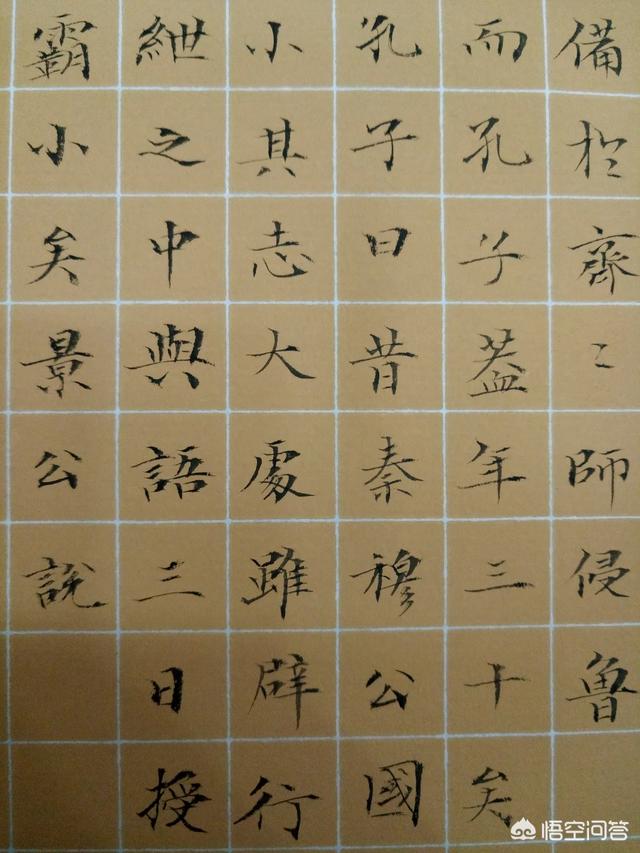 備於齊〻師侵魯
而孔子蓋年三十矣
孔子曰昔秦穆公國
小其志大處雖辟行
紲之中與語三日授
霸小矣景公說
悟空问答